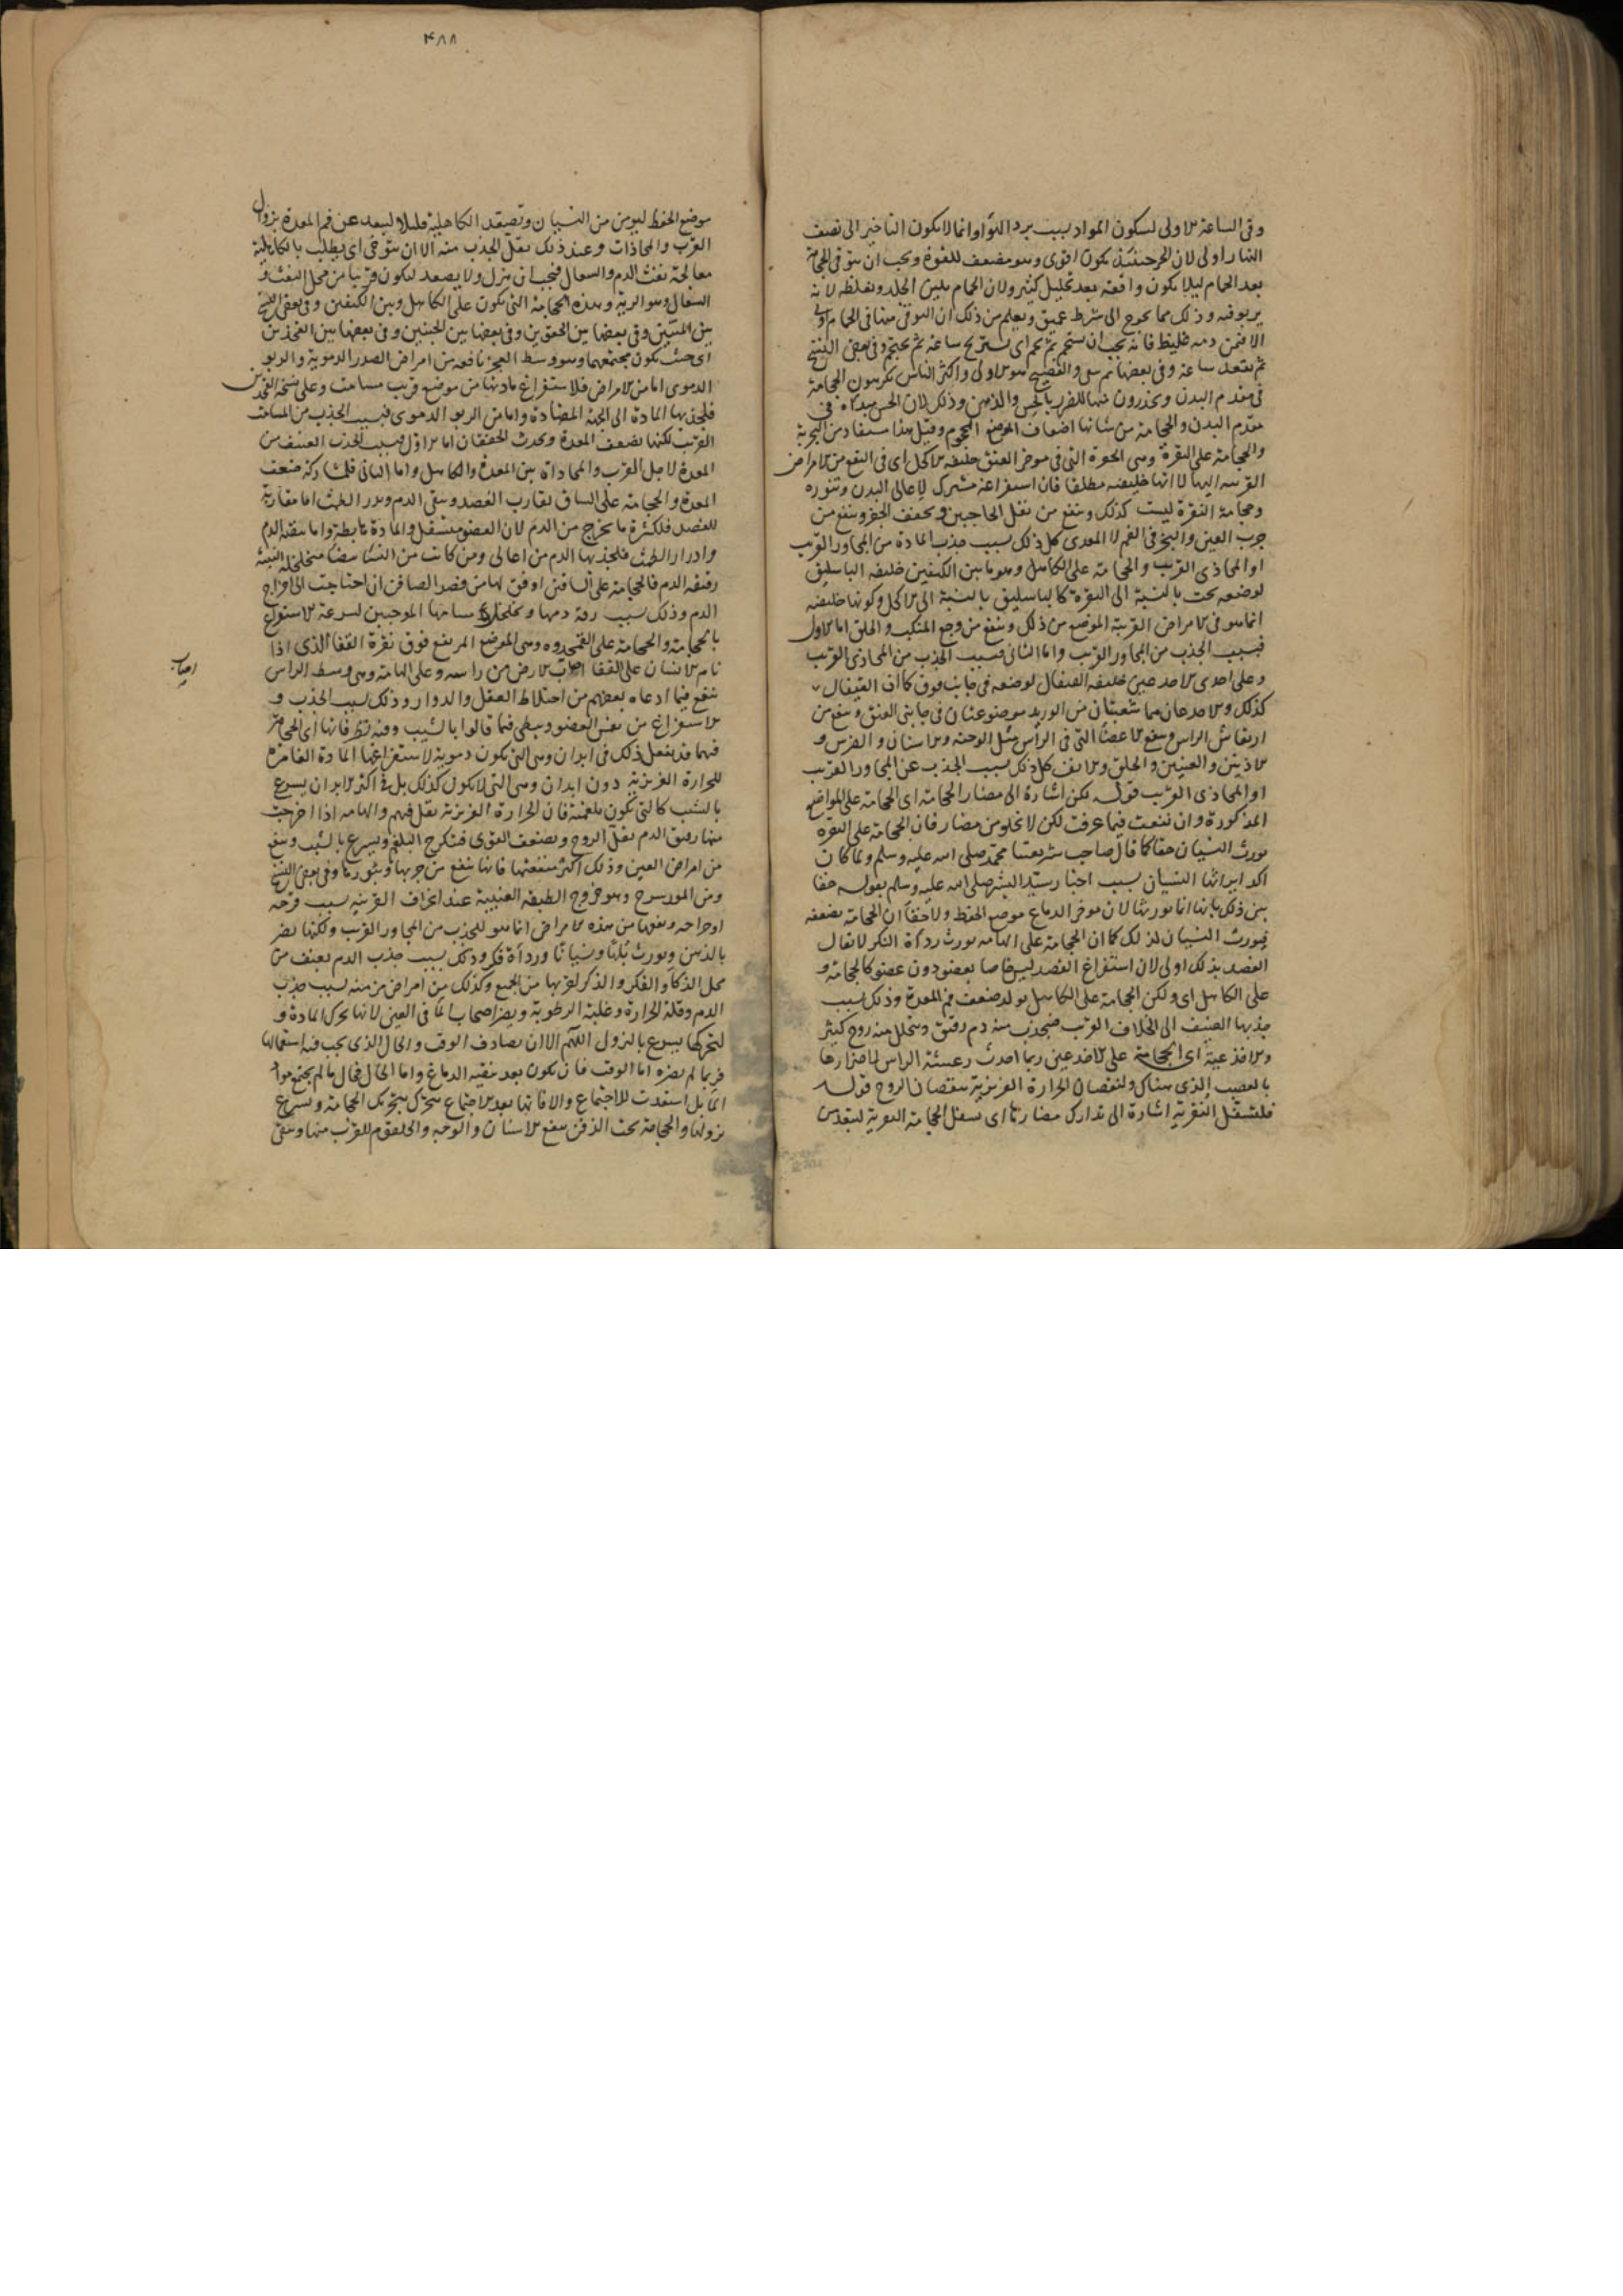 وفى الساعة الاولى لسكون المواد بسبب برد الهواء وانما لا يكون التاخير الى نصف
النهار اولى لان الحر حينئذ يكون اقوى وهو مضعف للقوة ويجب ان يتوقى الحجامة
بعد الحمام ليلا يكون واقعة بعد تحليل كثير ولان الحمام يلين الجلد ويغلظه لانه
يربو فيه وذلك مما يحوج الى شرط عميق ويعلم من ذلك ان التوقى منها فى الحمام اولى
الا فيمن دمه غليظ فانه يجب ان يستحم ثم يجم اى يستريح ساعة ثم يحتجم وفى بعض النسخ
ثم يقعد ساعة وفى بعضها ثم يبقى والصحيح هو الاولى واكثر الناس يكرهون الحجامة
فى مقدم البدن ويحذرون منها للضرر بالحس والذهن وذلك لان الحس مبداه فى
مقدم البدن والحجامة من شانها اضعاف الموضع المحجوم وقيل هذا مستفاد من التجربة
والحجامة على النقرة وهى الحفرة التى فى موخر العنق خليفة الاكحل اى فى النفع من الامراض
القريبة اليها لا انها خليفته مطلقا فان استفراغه مشترك لاعالى البدن وتنوره
وحجامة النقرة ليست كذلك وينفع من ثقل الحاجبين ويخفف الجفن وينفع من
جرب العين والبخر فى الفم لا المعدى كل ذلك بسبب جذب المادة من المجاور القريب
او المحاذى القريب والحجامة على الكاهل وهو ما بين الكتفين خليفة الباسليق
لوضعه تحت بالنسبة الى النقرة كالباسليق بالنسبة الى الاكحل وكونها خليفته
انما هو فى الامراض القريبة الموضع من ذلك وينفع من وجع المنكب والحلق اما الاول
فبسبب الجذب من المجاور القريب واما الثانى فبسبب الجذب من المحاذى القريب
وعلى احدى الاخدعين خليفة القيفال لوضعه فى جانب فوق كما ان القيفال
كذلك والاخدعان هما شعبتان من الوريد موضوعتان فى جانبى العنق وينفع من
ارتعاش الراس وينفع الاعضا التى فى الراس مثل الوجه والاسنان والضرس و
الاذنين والعينين والحلق والانف كل ذلك بسبب الجذب عن المجاور القريب
او المحاذى القريب قوله لكن اشارة الى مضار الحجامة اى الحجامة على المواضع
المذكورة وان نفعت فيما عرفت لكن لا تخلو من مضار فان الحجامة على النقره
يورث النسيان حقا كما قال صاحب شريعتنا محمد صلى الله عليه وسلم ولما كان
اكد ايراثها النسيان بسبب اخبار سيد البشر صلى الله عليه وسلم بقوله حقا
بين ذلك بانها انما يورثها لان موخر الدماغ موضع الحفظ ولا خفا ان الحجامة يضعفه
فيورث النسيان لذلك كما ان الحجامة على الهامه يورث رداة الفكر لا يقال
الفصد بذلك اولى لان استفراغ الفصد ليس خاصا بعضو دون عضو كالحجامة و
على الكاهل اى ولكن الحجامة على الكاهل يولد ضعف فم المعدة وذلك بسبب
جذبها العنيف الى الخلاف القريب فينجذب منه دم رقيق ويتحلل منه روح كثير
والاخدعية اى الحجامة على الاخدعين ربما احدث رعشة الراس لاضرارها
بالعصب الذى هناك ولنقصان الحرارة الغريزية بنقصان الروح قوله
فلتسفل النقرية اشارة الى تدارك مضارها اى يسفل الحجامة النقرية ليبعد من
۴۸۸
موضع الحفظ ليومن من النسيان وتصعد الكاهلية قليلا ليبعد عن فم المعدة بزوال
القرب والمحاذات وعند ذلك يقل الجذب منه الا ان يتوخى اى يطلب بالكاهلية
معالجة نفث الدم والسعال فيجب ان ينزل ولا يصعد ليكون قريبا من محل النفث و
السعال وهو الرية وهذه الحجامة التى يكون على الكاهل وبين الكتفين وفى بعض النسخ
بين المتنين وفى بعضها بين الحقوين وفى بعضها بين الجنبين وفى بعضها بين الفخذين
اى حيث يكون مجتمعهما وهو وسط العجز نافعه من امراض الصدر الدموية والربو
الدموى اما من الامراض فلاستفراغ مادتها من موضع قريب مسامت وعلى نسخة الفخذين
فلجذبها المادة الى الجهة المضادة واما من الربو الدموى فبسبب الجذب من المسامت
القريب لكنها يضعف المعدة ويحدث الخفقان اما الاول فبسبب الجذب العنيف من
المعدة لاجل القرب والمحاذاة بين المعدة والكاهل واما الثانى فلمشاركة ضعف
المعدة والحجامة على الساق يقارب الفصد وينقى الدم ويدر الطمث اما مقاربة
للفصد فلكثرة ما يخرج من الدم لان العضو متسفل والمادة هابطة واما تنقية الدم
وادرار الطمث فلجذبها الدم من اعالى ومن كانت من النسا بيضا متخلخلة البنية
رقيقة الدم فالحجامة على الساقين اوفق لها من فصد الصافن ان احتاجت الى اخراج
الدم وذلك بسبب رقة دمها وتخلخل مسامها الموجبين لسرعة الاستفراغ
بالحجامة والحجامة على القمحدوه وهى الموضع المرتفع فوق نقرة القفا الذى اذا
نام الانسان على القفا اصاب الارض من راسه وعلى الهامة وهى وسط الراس
اصاب
ينفع فيما ادعاه بعضهم من اختلاط العقل والدوار وذلك لسبب الجذب و
الاستفراغ من نفس العضو ويبطى فيما قالوا بالشيب وفيه نظر فانها اى الحجامة
فيهما قد يفعل ذلك فى ابدان وهى التى يكون دموية لاستفراغها المادة الغامرة
للحرارة الغريزية دون ابدان وهى التى لا يكون كذلك بل فى اكثر الابدان يسرع
بالشيب كالتى يكون بلغمية فان الحرارة الغريزية يقل فيهم والهامه اذا اخرجت
منها رقيق الدم يقل الروح ويضعف القوى فيتكرج البلغم ويسرع بالشيب وينفع
من امراض العين وذلك اكثر منفعتها فانها ينفع من جربها وبثورها وفى بعض النسخ
ومن المورسرج وهو خروج الطبقة العنبية عند انخراق القرنيه بسبب قرحه
او جراحه ونفعها من هذه الامراض انما هو للجذب من المجاور القريب ولكنها يضر
بالذهن ويورث بلها ونسيانا ورداة فكر وذلك بسبب جذب الدم بعنف من
محل الذكا والفكر والذكر لقربها من الجميع وكذلك من امراض مزمنه بسبب جذب
الدم وقلة الحرارة وغلبة الرطوبة ويضر اصحاب الما فى العين لانها يحرك المادة و
لتحركها يسرع بالنزول اللهم الا ان يصادف الوقت والحال الذى يجب فيه استعمالها
فربما لم يضره اما الوقت فان يكون بعد تنقية الدماغ واما الحال فحال ما لم يجتمع مواد
الما بل استعدت للاجتماع والا فانها بعد الاجتماع يتحرك بتحريك الحجامة ويسرع
نزولها والحجامة تحت الذقن ينفع الاسنان والوجه والحلقوم للقرب منها وينقى